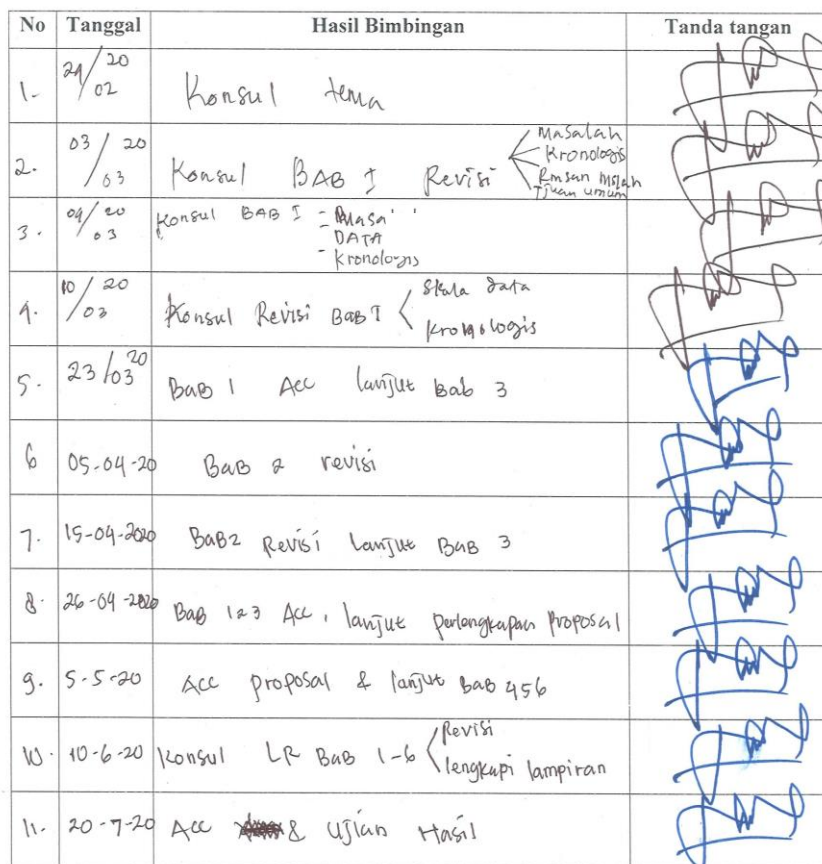 No Tanggal Hasil Bimbingan Tanda tangan
1. 20
/02 Konsul tema
2. 03/20
/03 Konsul BAB I Revisi Masalah
Kronologis
Rmsan Mslah
Tjuan umum
3. 04/20
/03 Konsul BAB I - 
- DATA
- Kronologis
4. 10/20
/03 Konsul Revisi BaB I Skala data
Kronologis
5. 23/03 20 BaB 1 Acc lanjut Bab 3
6 05-04-20 BaB 2 revisi
7. 15-04-2020 BaB2 Revisi lanjut BaB 3
8. 26-04-2020 BaB 123 Acc, lanjut perlengkapan Proposal
9. 5-5-20 Acc proposal & lanjut BaB 456
10. 10-6-20 Konsul LR BaB 1-6 Revisi
lengkapi lampiran
11. 20-7-20 Acc & Ujian Hasil